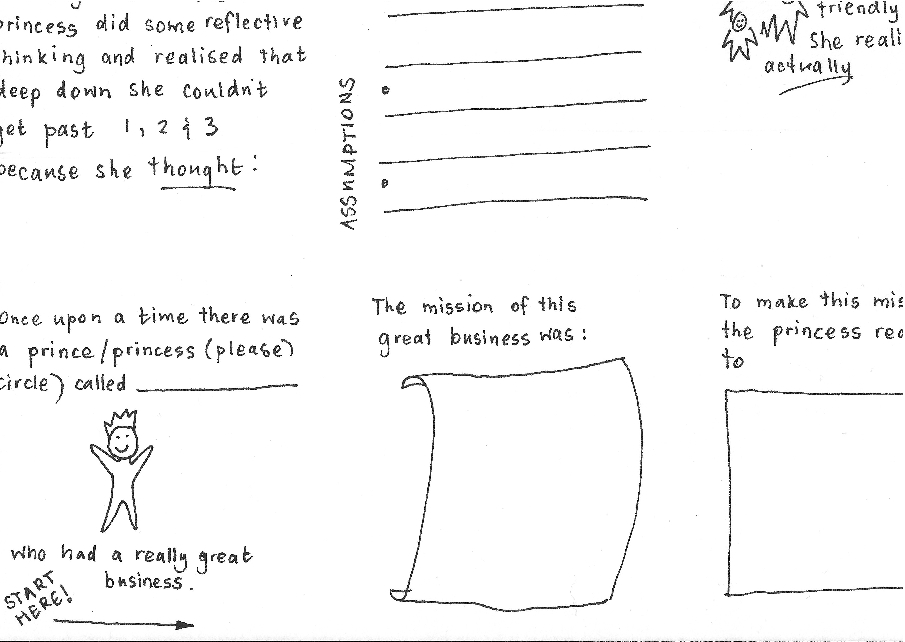 princess did some reflective
thinking and realised that
deep down she couldn't
get past 1, 2 & 3
because she thought:
ASSUMPTIONS
friendly
She reali
actually
Once upon a time there was
a prince/princess (please)
circle) called
who had a really great
business.
START
HERE!
The mission of this
great business was:
To make this mis
the princess rea
to